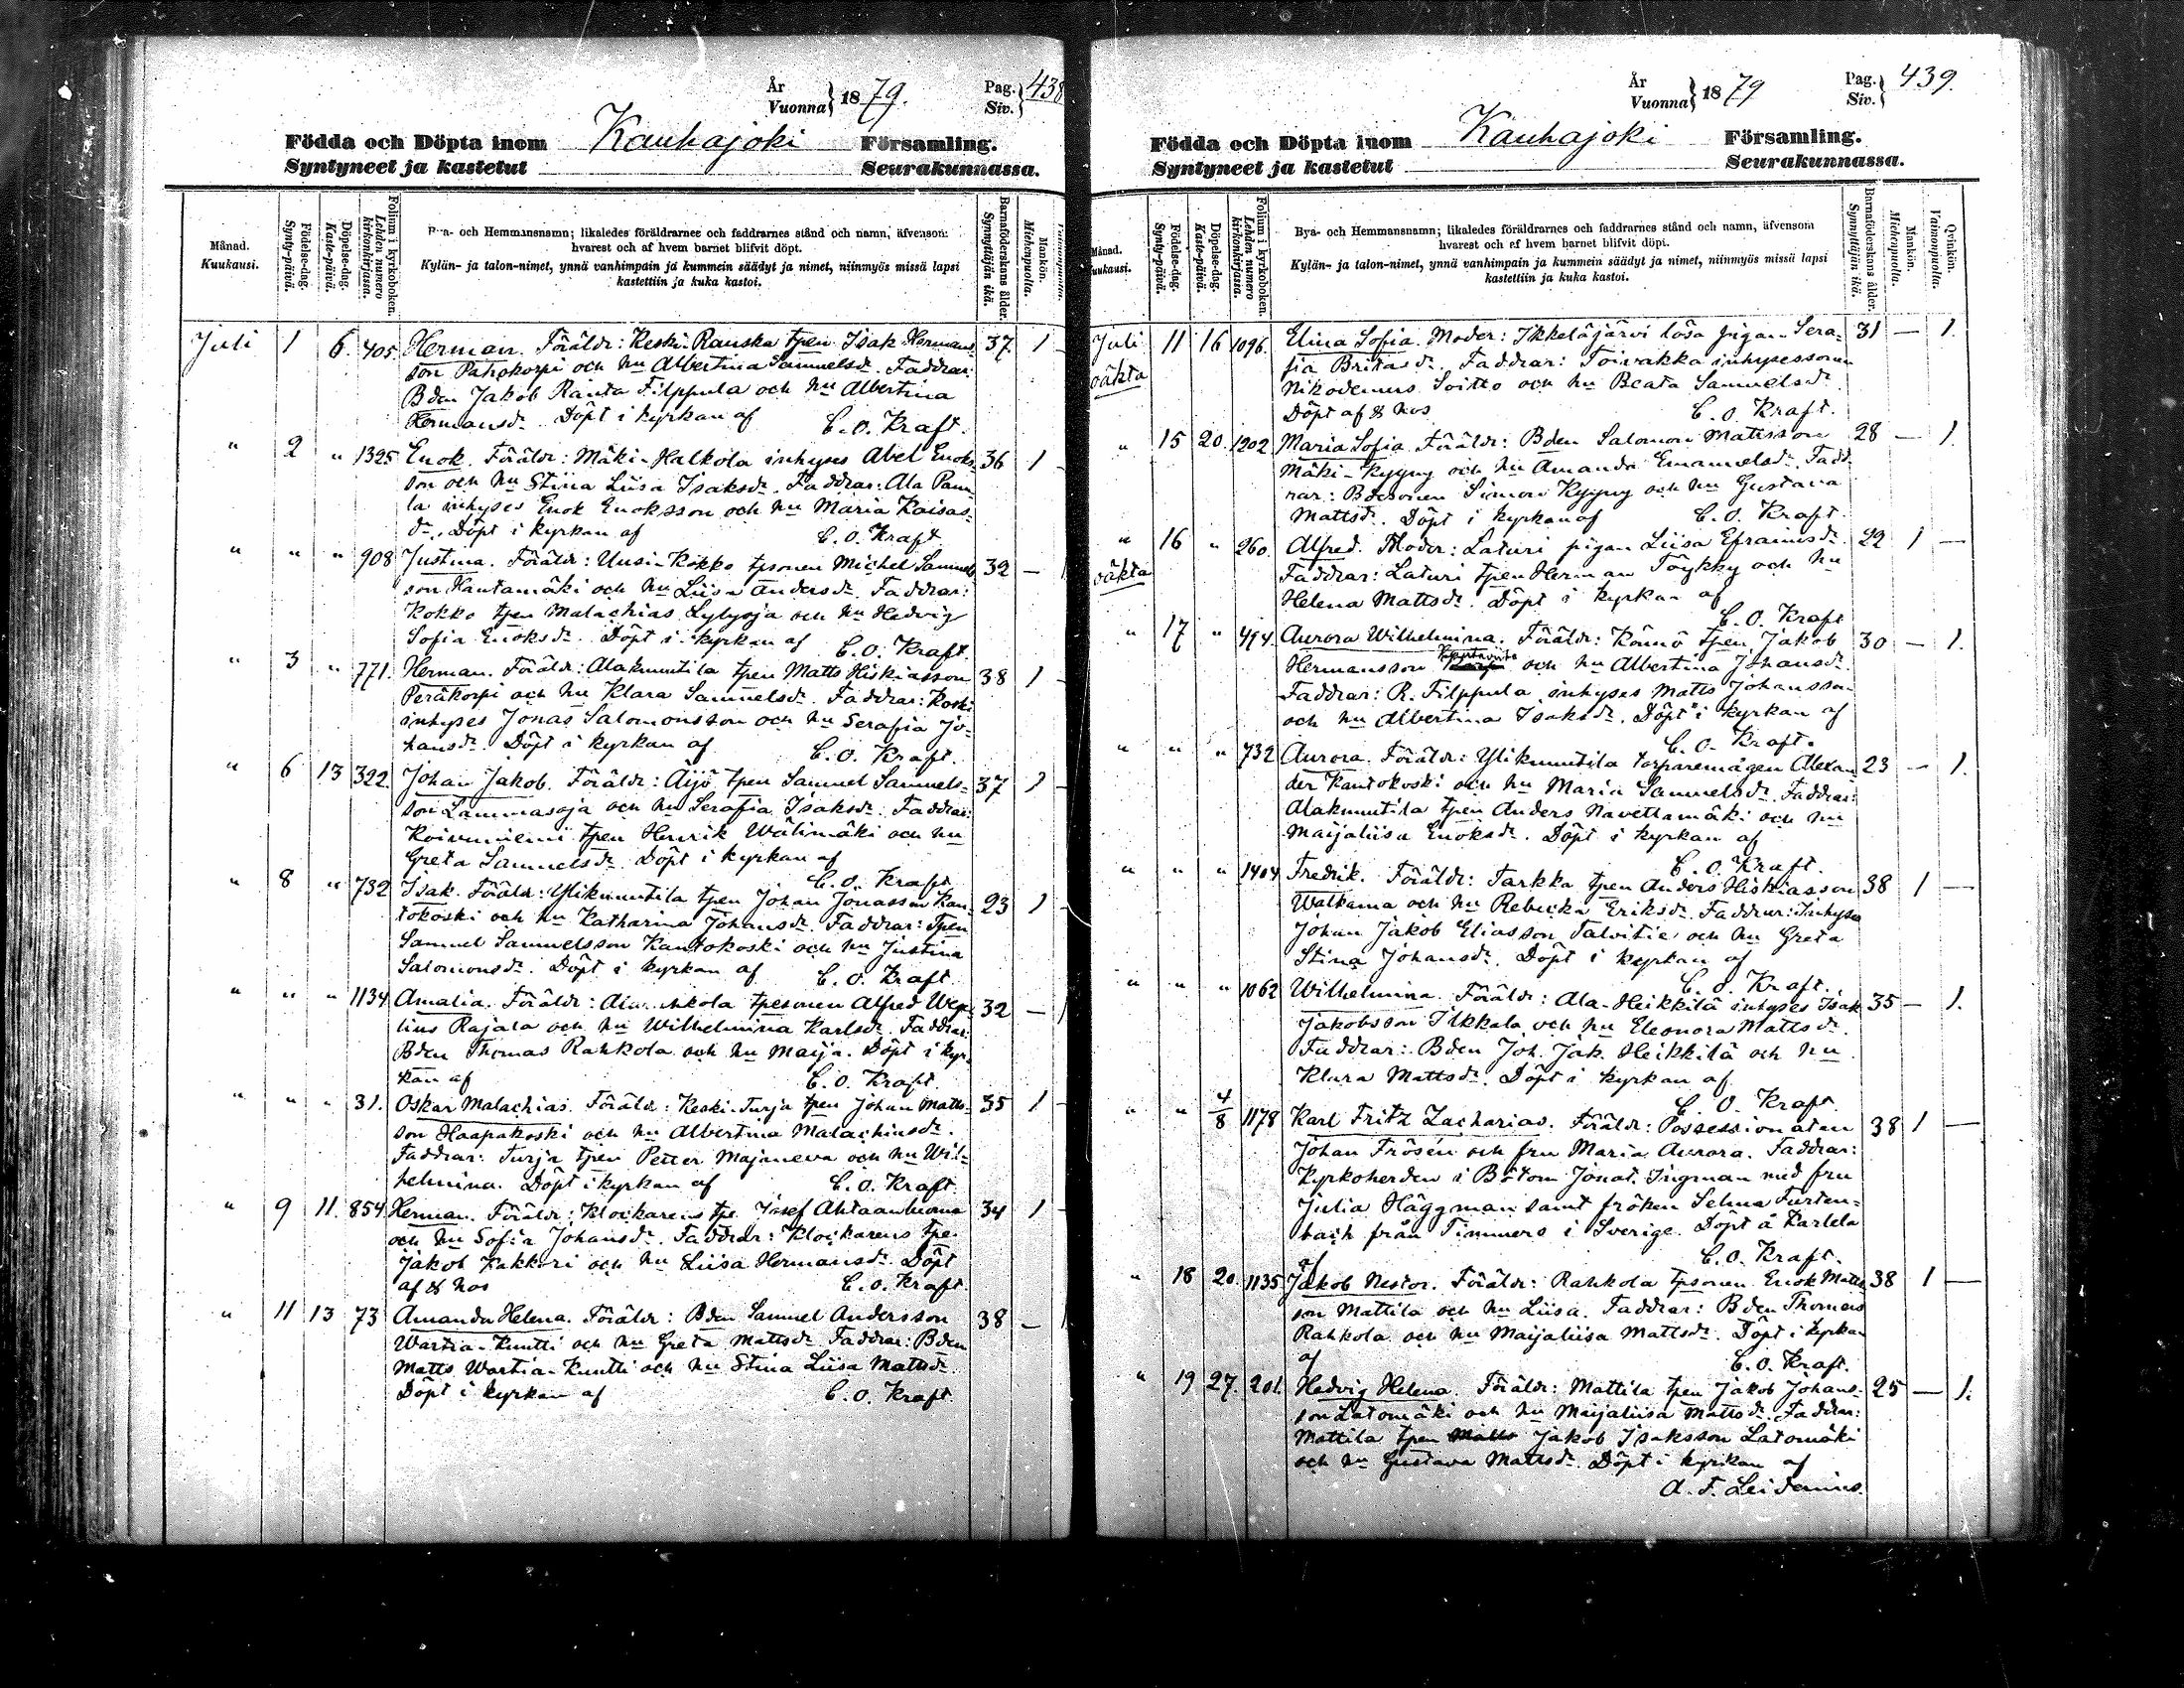 År
Vuonna } 1879.
Pag.
Siv. } 438
Födda och Döpta inom Kauhajoki Församling.
Syntyneet ja kastetut Seurakunnassa.
Månad.
Kuukausi.
Födelse-dag.
Synty-päivä.
Döpelse-dag.
Kaste-päivä.
Folium i kyrkoboken.
Lehden numero
kirkonkirjassa.
Bya- och Hemmansnamn; likaledes föräldrarnes och faddrarnes stånd och namn, äfvensom
hvarest och af hvem barnet blifvit döpt.
Kylän- ja talon-nimet, ynnä vanhimpain ja kummein säädyt ja nimet, niinmyös missä lapsi
kastettiin ja kuka kastoi.
Barnaföderskans ålder.
Synnyttäjän ikä.
Mankön.
Miehenpuolta.
Juli 1 6. 405 Herman. Föräldr: Keski-Rauska tpen Isak Hermans- 37. 1
son Pahkakorpi och hu Albertina Samuelsdr. Faddrar:
Bden Jakob Ranta Filppula och hu Albertina
Hermansdr. Döpt i kyrkan af C. O. Kraft.
" 2 " 1325 Enok. Föräldr: Mäki-Halkola inhyses Abel Enoks- 36 1
son och hu Stina Liisa Isaksdr. Faddrar: Ala Panu-
la inhyses Enok Enoksson och hu Maria Kaisas-
dr. Döpt i kyrkan af C. O. Kraft
" " " 908 Justina. Föräldr: Uusi-Kokko tpsonen Michel Samuels- 32 —
son Hautamäki och hu Liisa Andersdr. Faddrar:
Kokko tpen Malachias Lylyoja och hu Hedvig
Sofia Enoksdr. Döpt i kyrkan af C. O. Kraft.
" 3 " 771. Herman. Föräldr: Alaknuutila tpen Matts Hiskiasson 38 1
Peräkorpi och hu Klara Samuelsdr. Faddrar: Koski
inhyses Jonas Salomonsson och hu Serafia Jo-
hansdr. Döpt i kyrkan af C. O. Kraft.
" 6 13 322. Johan Jakob. Föräldr: Äijö tpen Samuel Samuels- 37 1
son Lammasoja och hu Serafia Isaksdr. Faddrar:
Koivuniemi tpen Henrik Wälimäki och hu
Greta Samuelsdr. Döpt i kyrkan af
C. O. Kraft
" 8 " 732 Isak. Föräldr: Yliknuutila tpen Johan Jonasson Kan- 23 1
tokoski och hu Katharina Johansdr. Faddrar: Tpen
Samuel Samuelsson Kantokoski och hu Justina
Salomonsdr. Döpt i kyrkan af C. O. Kraft.
" " " 1134 Amalia. Föräldr: tpesonen Alfred 32 —
lius Rajala och hu Wilhelmina Karlsdr. Faddrar:
Bden Thomas Rahkola och hu Maija. Döpt i kyr-
kan af C. O. Kraft.
" " " 31. Oskar Malachias. Föräldr: Keski-Turja tpen Johan Matts- 35 1
son Haapakoski och hu Albertina Malachiasdr.
Faddrar: Turja tpen Petter Majaneva och hu Wil-
helmina. Döpt i kyrkan af C. O. Kraft.
" 9 11. 854 Herman. Föräldr: Klockarens tpe Josef Ahtaanluoma 34 1
och hu Sofia Johansdr. Faddrar: Klockarens tpe.
Jakob Kakkori och hu Liisa Hermansdr. Döpt
af & hos C. O. Kraft.
" 11 13 73 Amanda Helena. Föräldr: Bden Samuel Andersson 38 —
Wartia-Kuntti och hu Greta Mattsdr. Faddrar: Bden
Matts Wartia-Kuntti och hu Stina Liisa Mattsdr.
Döpt i kyrkan af C. O. Kraft.
År
Vuonna } 1879
Pag.
Siv. } 439.
Födda och Döpta inom Kauhajoki Församling.
Syntyneet ja kastetut Seurakunnassa.
Månad.
Kuukausi.
Födelse-dag.
Synty-päivä.
Döpelse-dag.
Kaste-päivä.
Folium i kyrkoboken.
Lehden numero
kirkonkirjassa.
Bya- och Hemmansnamn; likaledes föräldrarnes och faddrarnes stånd och namn, äfvensom
hvarest och af hvem barnet blifvit döpt.
Kylän- ja talon-nimet, ynnä vanhimpain ja kummein säädyt ja nimet, niinmyös missä lapsi
kastettiin ja kuka kastoi.
Barnaföderskans ålder.
Synnyttäjän ikä.
Mankön.
Miehenpuolta.
Qvinkön.
Vaimonpuolta.
Juli 11 16 1096. Elina Sofia. Moder: Ikkeläjärvi lösa pigan Sera- 31 — 1.
oäkta fia Britasdr. Faddrar: Toivakka inhysessonen
Nikodemus Soitto och hu Beata Samuelsdr.
Döpt af & hos C. O. Kraft.
" 15 20. 1202 Maria Sofia. Föräldr: Bden Salomon Mattsson 28 — 1.
Mäki-Kyyny och hu Amanda Emanuelsdr. Fadd-
rar: Bdesonen Simon Kyyny och hu Gustava
Mattsdr. Döpt i kyrkan af C. O. Kraft.
" 16 " 260. Alfred. Moder: Laturi pigan Liisa Eframsdr. 22 1 —
oäkta Faddrar: Laturi tpen Herman Töykky och hu
Helena Mattsdr. Döpt i kyrkan af
C. O. Kraft
" 17 " 494. Aurora Wilhelmina. Föräldr: Könnö tpen Jakob 30 — 1.
Hermansson och hu Albertina Johansdr.
Faddrar: R. Filppula inhyses Matts Johansson
och hu Albertina Isaksdr. Döpt i kyrkan af
C. O. Kraft.
" " " 732 Aurora. Föräldr: Yliknuutila torparemågen Alexan- 23 — 1.
der Kantokoski och hu Maria Samuelsdr. Faddrar:
Alaknuutila tpen Anders Navettamäki och hu
Maijaliisa Enoksdr. Döpt i kyrkan af
C. O. Kraft.
" " " 1404 Fredrik. Föräldr: Tarkka tpen Anders Hiskiasson 38 1 —
Walkama och hu Rebecka Eriksdr. Faddrar: Inhyses
Johan Jakob Eliasson Talvitie och hu Greta
Stina Johansdr. Döpt i kyrkan af
C. O. Kraft.
" " " 1062 Wilhelmina. Föräldr: Ala-Heikkilä inhyses Isak 35 — 1.
Jakobsson Ilkkala och hu Eleonora Mattsdr.
Faddrar: Bden Joh. Jak. Heikkilä och hu
Klara Mattsdr. Döpt i kyrkan af
C. O. Kraft.
" " 4/8 1178 Karl Fritz Zacharias. Föräldr: Possessionaten 38 1 —
Johan Frösén och fru Maria Aurora. Faddrar:
Kyrkoherden i Bötom Jonat. Ingman med fru
Julia Häggman samt fröken Selma Fursten-
bach från Timmers i Sverige. Döpt å Karlela
af C. O. Kraft.
" 18 20. 1135 Jakob Nestor. Föräldr: Rahkola tpsonen Enok Matts- 38 1 —
son Mattila och hu Liisa. Faddrar: Bden Thomas
Rahkola och hu Maijaliisa Mattsdr. Döpt i kyrkan
af C. O. Kraft.
" 19 27. 201. Hedvig Helena. Föräldr: Mattila tpen Jakob Johans- 25 — 1.
son Latomäki och hu Maijaliisa Mattsdr. Faddrar:
Mattila tpen Jakob Isaksson Latomäki
och hu Gustava Mattsdr. Döpt i kyrkan af
A. F. Leidenius.